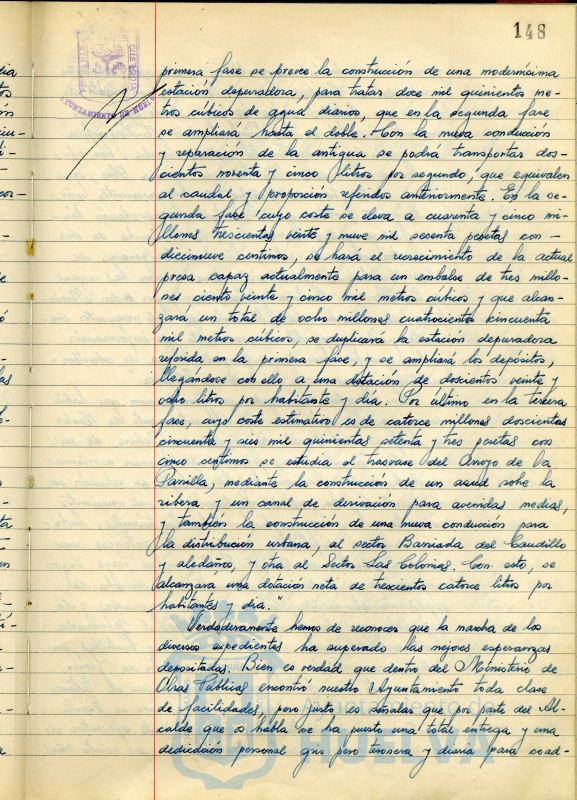 148
AYUNTAMIENTO DE HUELVA
primera fase se preve la construcción de una modernísima
estación depuradora, para tratar doce mil quinientos me-
tros cúbicos de agua diarios, que en la segunda fase
se ampliará hasta el doble. Con la nueva conducción
y reparación de la antigua se podrá transportar dos-
cientos noventa y cinco litros por segundo, que equivalen
al caudal y proporción referidos anteriormente. En la se-
gunda fase cuyo coste se eleva a cuarenta y cinco mi-
llones trescientas veinte y nueve mil sesenta pesetas con -
diecinueve centimos, se hará el recrecimiento de la actual
presa capaz actualmente para un embalse de tres millo-
nes ciento veinte y cinco mil metros cúbicos y que alcan-
zara un total de ocho millones cuatrocientos cincuenta
mil metros cúbicos, se duplicará la estación depuradora
referida en la primera fase, y se ampliará los depósitos,
llegándose con ello a una dotación de doscientos veinte y
ocho litros por habitante y día. Por ultimo en la tercera
fase, cuyo coste estimativo es de catorce millones doscientas
cincuenta y seis mil quinientas setenta y tres pesetas con
cinco centimos se estudia el trasvase del Arroyo de la
Parrilla, mediante la construcción de un azud sobre la
ribera y un canal de derivación para avenidas medias,
y también la construcción de una nueva conducción para
la distribución urbana, al sector Barriada del Caudillo
y aledaños, y otra al Sector Las Colonias. Con esto, se
alcanzará una dotación neta de trescientos catorce litros por
habitantes y dia."
Verdaderamente hemos de reconocer que la marcha de los
diversos expedientes ha superado las mejores esperanzas
depositadas. Bien es verdad que dentro del Ministerio de
Obras Públicas encontró nuestro Ayuntamiento toda clase
de facilidades, pero justo es señalar que por parte del Al-
calde que os habla se ha puesto una total entrega y una
dedicación personal gris pero tesonera y diaria para coad-